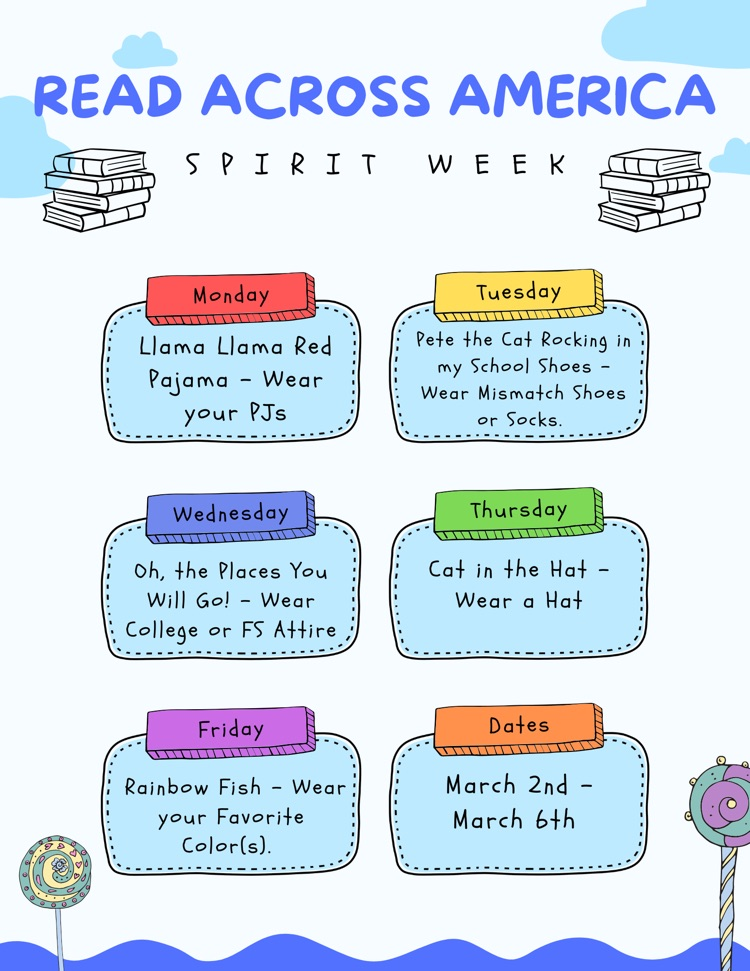 READ ACROSS AMERICA
SPIRIT WEEK
Monday
Llama Llama Red
Pajama - Wear
your PJs
Tuesday
Pete the Cat Rocking in
my School Shoes -
Wear Mismatch Shoes
or Socks.
Wednesday
Oh, the Places You
Will Go! - Wear
College or FS Attire
Thursday
Cat in the Hat -
Wear a Hat
Friday
Rainbow Fish - Wear
your Favorite
Color(s).
Dates
March 2nd -
March 6th